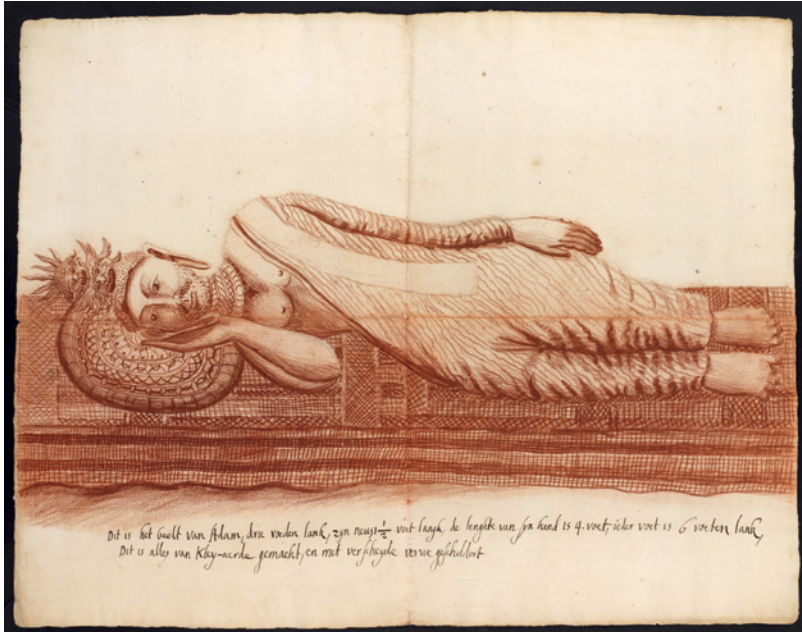 Dit is het beelt van Adam, drie roeden lank, zyn neus 1 1/2 voet langh, de lenghte van syn hand is 4. voet, ieder voet is 6 voeten lank,
Dit is alles van Kley-aerde gemaekt, en met verscheyde verwe geschildert